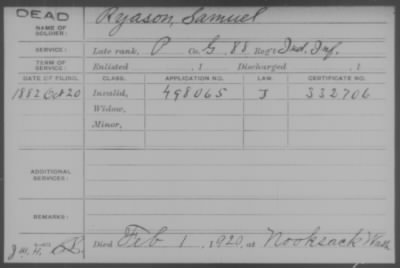 DEAD
NAME OF SOLDIER: Ryason, Samuel
SERVICE: Late rank, P Co. G, 88 Reg't Ind. Inf.
TERM OF SERVICE: Enlisted , 1 Discharged , 1
DATE OF FILING. CLASS. APPLICATION NO. LAW. CERTIFICATE NO.
1882 Oct 20 Invalid, 498065 J 332706
Widow,
Minor,
ADDITIONAL SERVICES:
REMARKS:
J.W.H. Died Feb 1, 1920, at Nooksack Wash